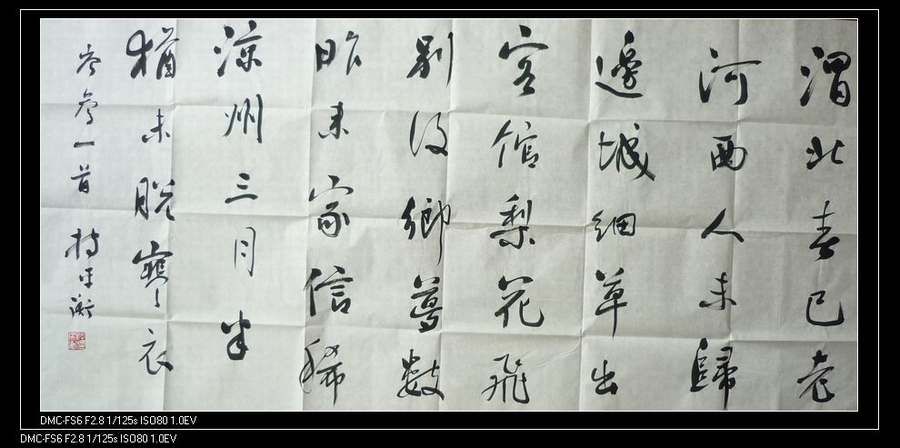 渭北春已老
河西人未歸
邊城細草出
客館梨花飛
別後鄉夢數
昨来家信稀
涼州三月半
猶未脫寒衣
岑參一首
DMC-FS6 F2.8 1/125s ISO80 1.0EV
DMC-FS6 F2.8 1/125s ISO80 1.0EV